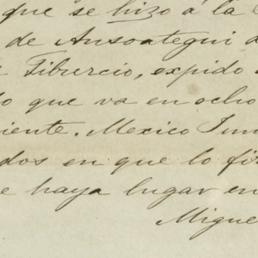 que se hizo á la
de Ansoategui
Tiburcio, expido
que va en ocho
iente. Mexico Jun
dos en que lo fir
e haya lugar en
Migue